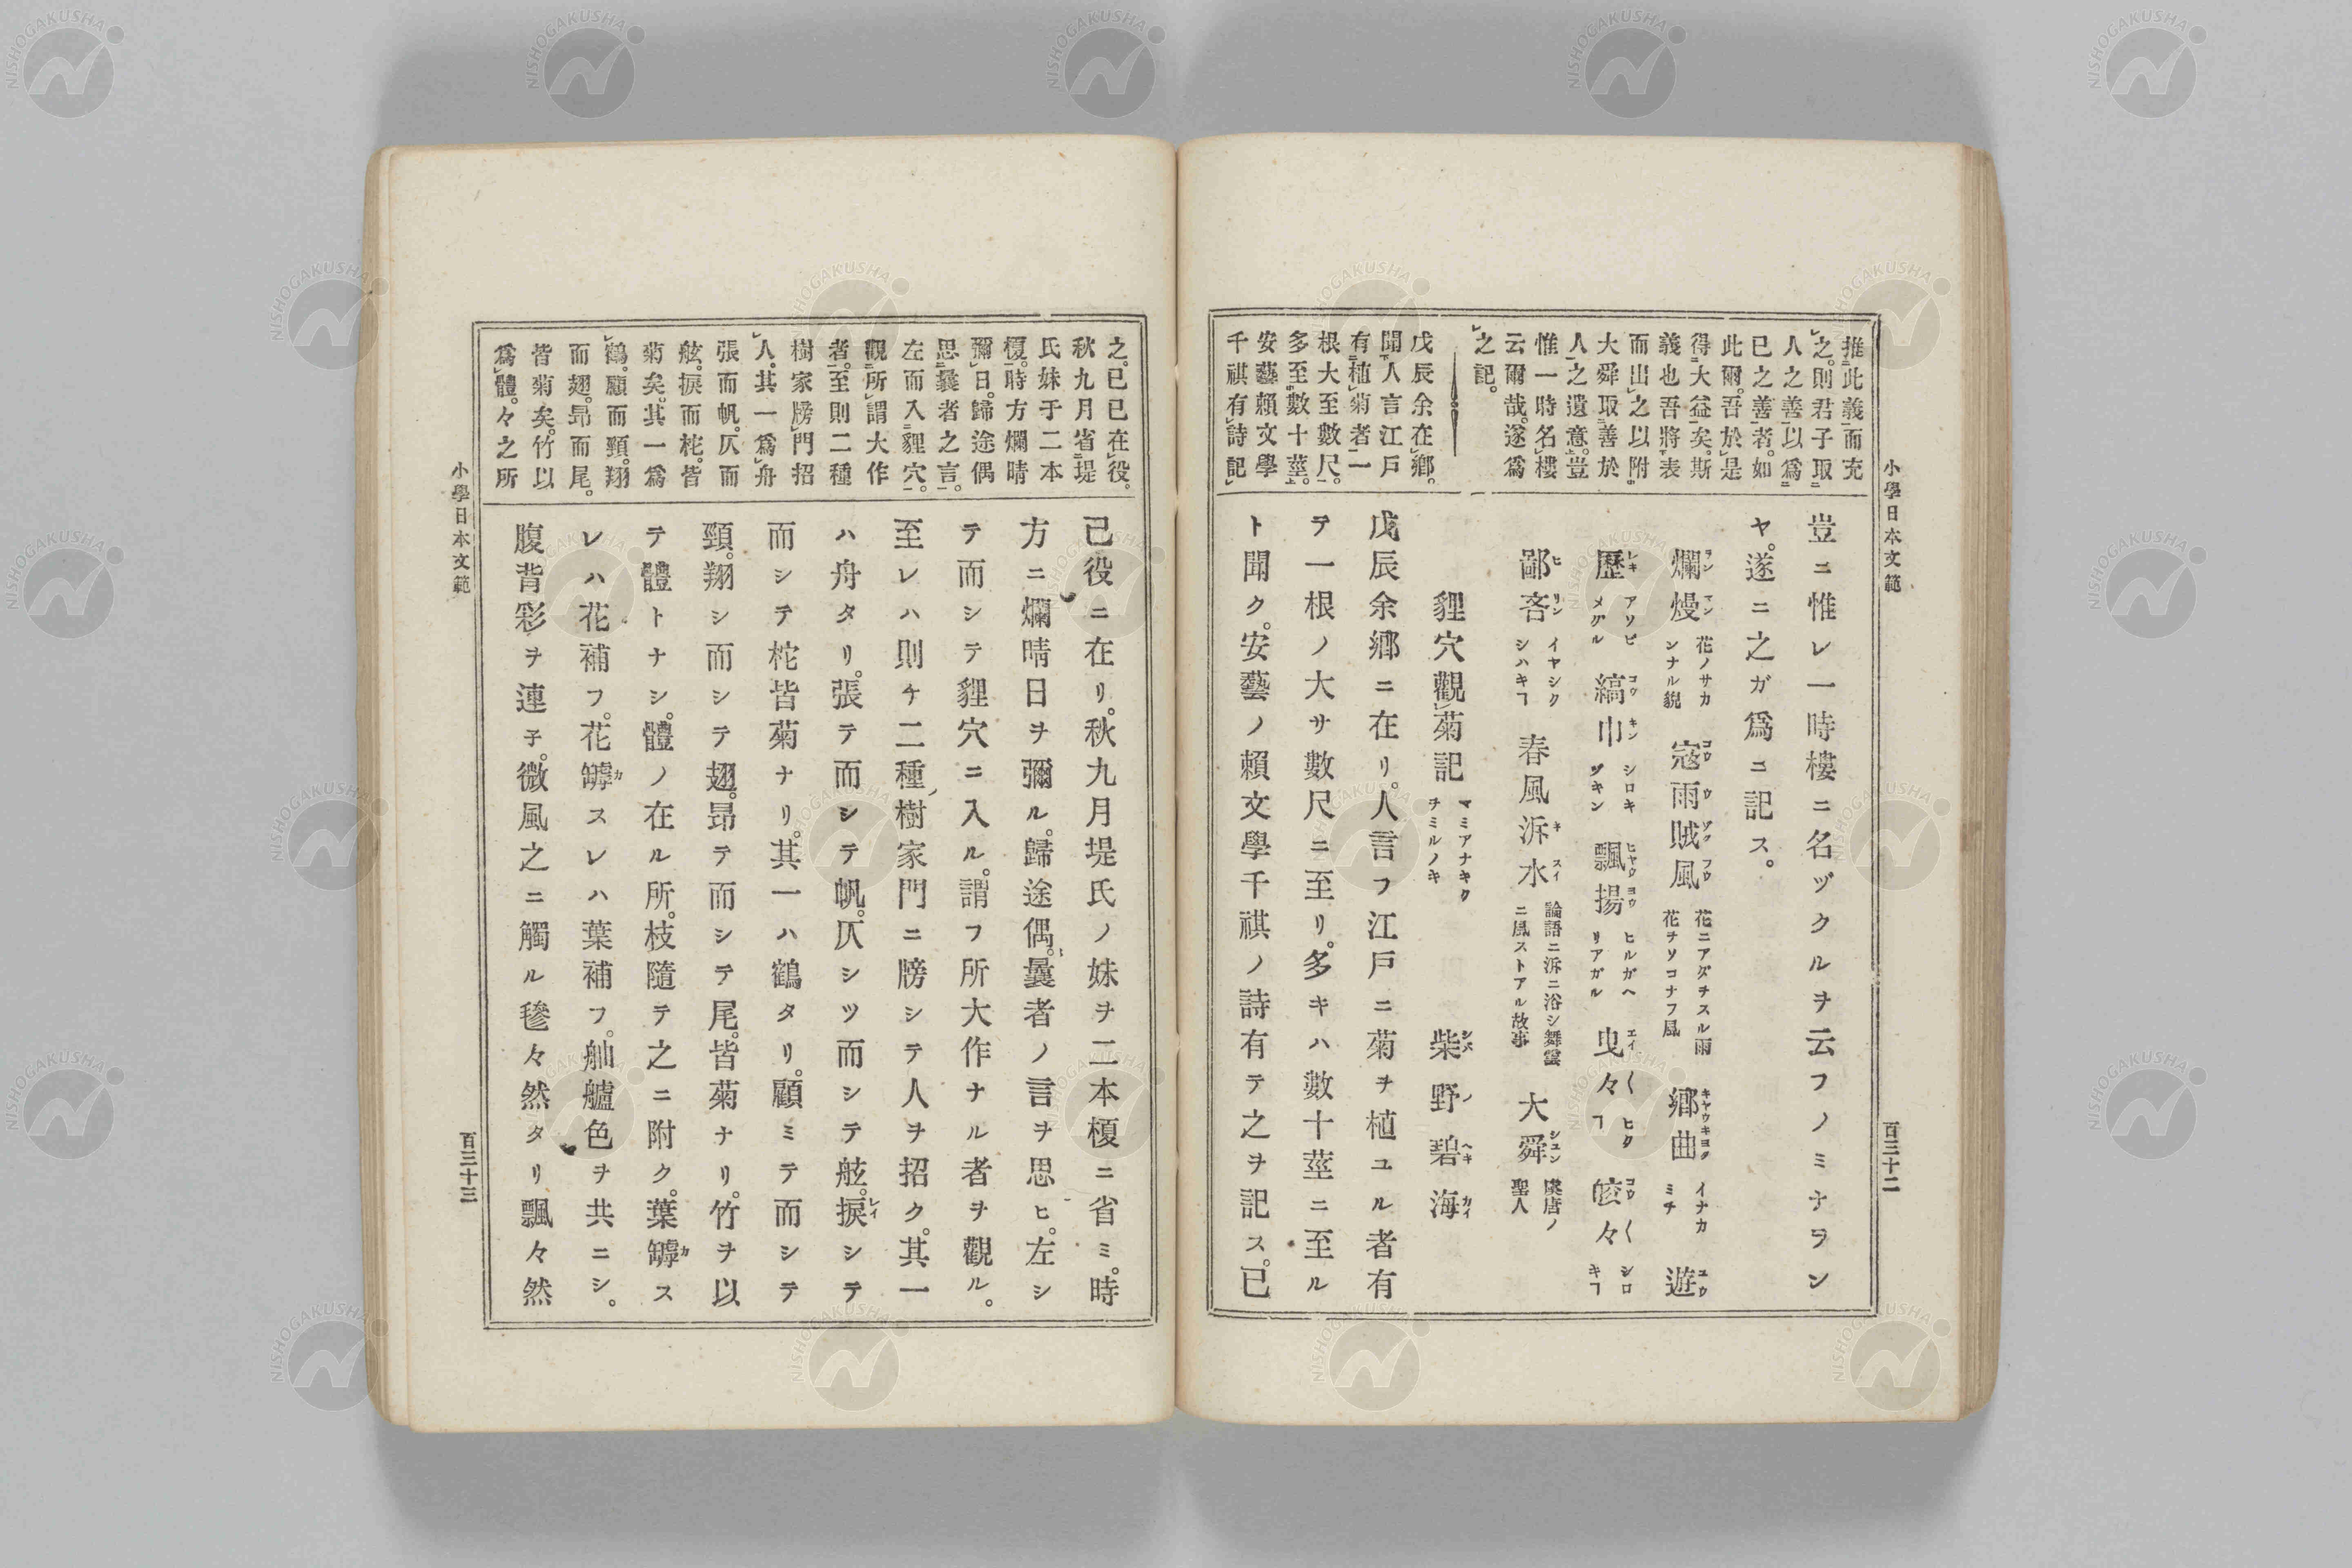 小學日本文範
百三十二
推此義而充
之。則君子取
人之善以爲
已之善者。如
此爾。吾於是
得大益矣。斯
義也吾將表
而出之以附
大舜取善於
人之遺意。豈
惟一時名樓
云爾哉。遂爲
之記。
戊辰余在鄉。
聞人言江戸
有植菊者一
根大至數尺。
多至數十莖。
安藝賴文學
千祺有詩記
豈ニ惟レ一時樓ニ名ヅクルヲ云フノミナヲン
ヤ。遂ニ之ガ爲ニ記ス。
爛熳 花ノサカンナル貌 寇雨賊風 花ニアダチスル雨花チソコナフ風 鄕曲 イナカミチ 遊
歷 アソビメグル 縞巾 シロキヅキン 飄揚 ヒルガヘリアガル 曳々 ヒクフ 皎々 シロキフ
鄙吝 イヤシクシハキフ 春風沂水 論語ニ沂ニ浴シ舞雩ニ風ストアル故事 大舜 虞唐ノ聖人
貍穴觀菊記 マミアナキクチミルノキ 柴野碧海
戊辰余鄕ニ在リ。人言フ江戸ニ菊ヲ植ユル者有
テ一根ノ大サ數尺ニ至リ。多キハ數十莖ニ至ル
ト聞ク。安藝ノ賴文學千祺ノ詩有テ之ヲ記ス。已
之。已已在役。
秋九月省堤
氏妹于二本
榎。時方爛晴
彌日。歸途偶
思曩者之言。
左而入貍穴。
觀所謂大作
者。至則二種
樹家牓門招
人。其一爲舟
張而帆。仄而
舷。捩而柁。皆
菊矣。其一爲
鶴。顧而頸。翔
而翅。昂而尾。
皆菊矣。竹以
爲體。々之所
己役ニ在リ。秋九月堤氏ノ妹ヲ二本榎ニ省ミ。時
方ニ爛晴日ヲ彌ル。歸途偶。曩者ノ言ヲ思ヒ。左シ
テ而シテ貍穴ニ入ル。謂フ所大作ナル者ヲ觀ル。
至レハ則チ二種ノ樹家門ニ牓シテ人ヲ招ク。其一
ハ舟タリ。張テ而シテ帆。仄シツ而シテ舷。捩シテ
而シテ柁皆菊ナリ。其一ハ鶴タリ。顧ミテ而シテ
頸。翔シ而シテ翅。昂テ而シテ尾。皆菊ナリ。竹ヲ以
テ體トナシ。體ノ在ル所。枝隨テ之ニ附ク。葉罅ス
レハ花補フ。花罅スレハ葉補フ。舳艫色ヲ共ニシ。
腹背彩ヲ連子。微風之ニ觸ル毿々然タリ飄々然
小學日本文範
百三十三